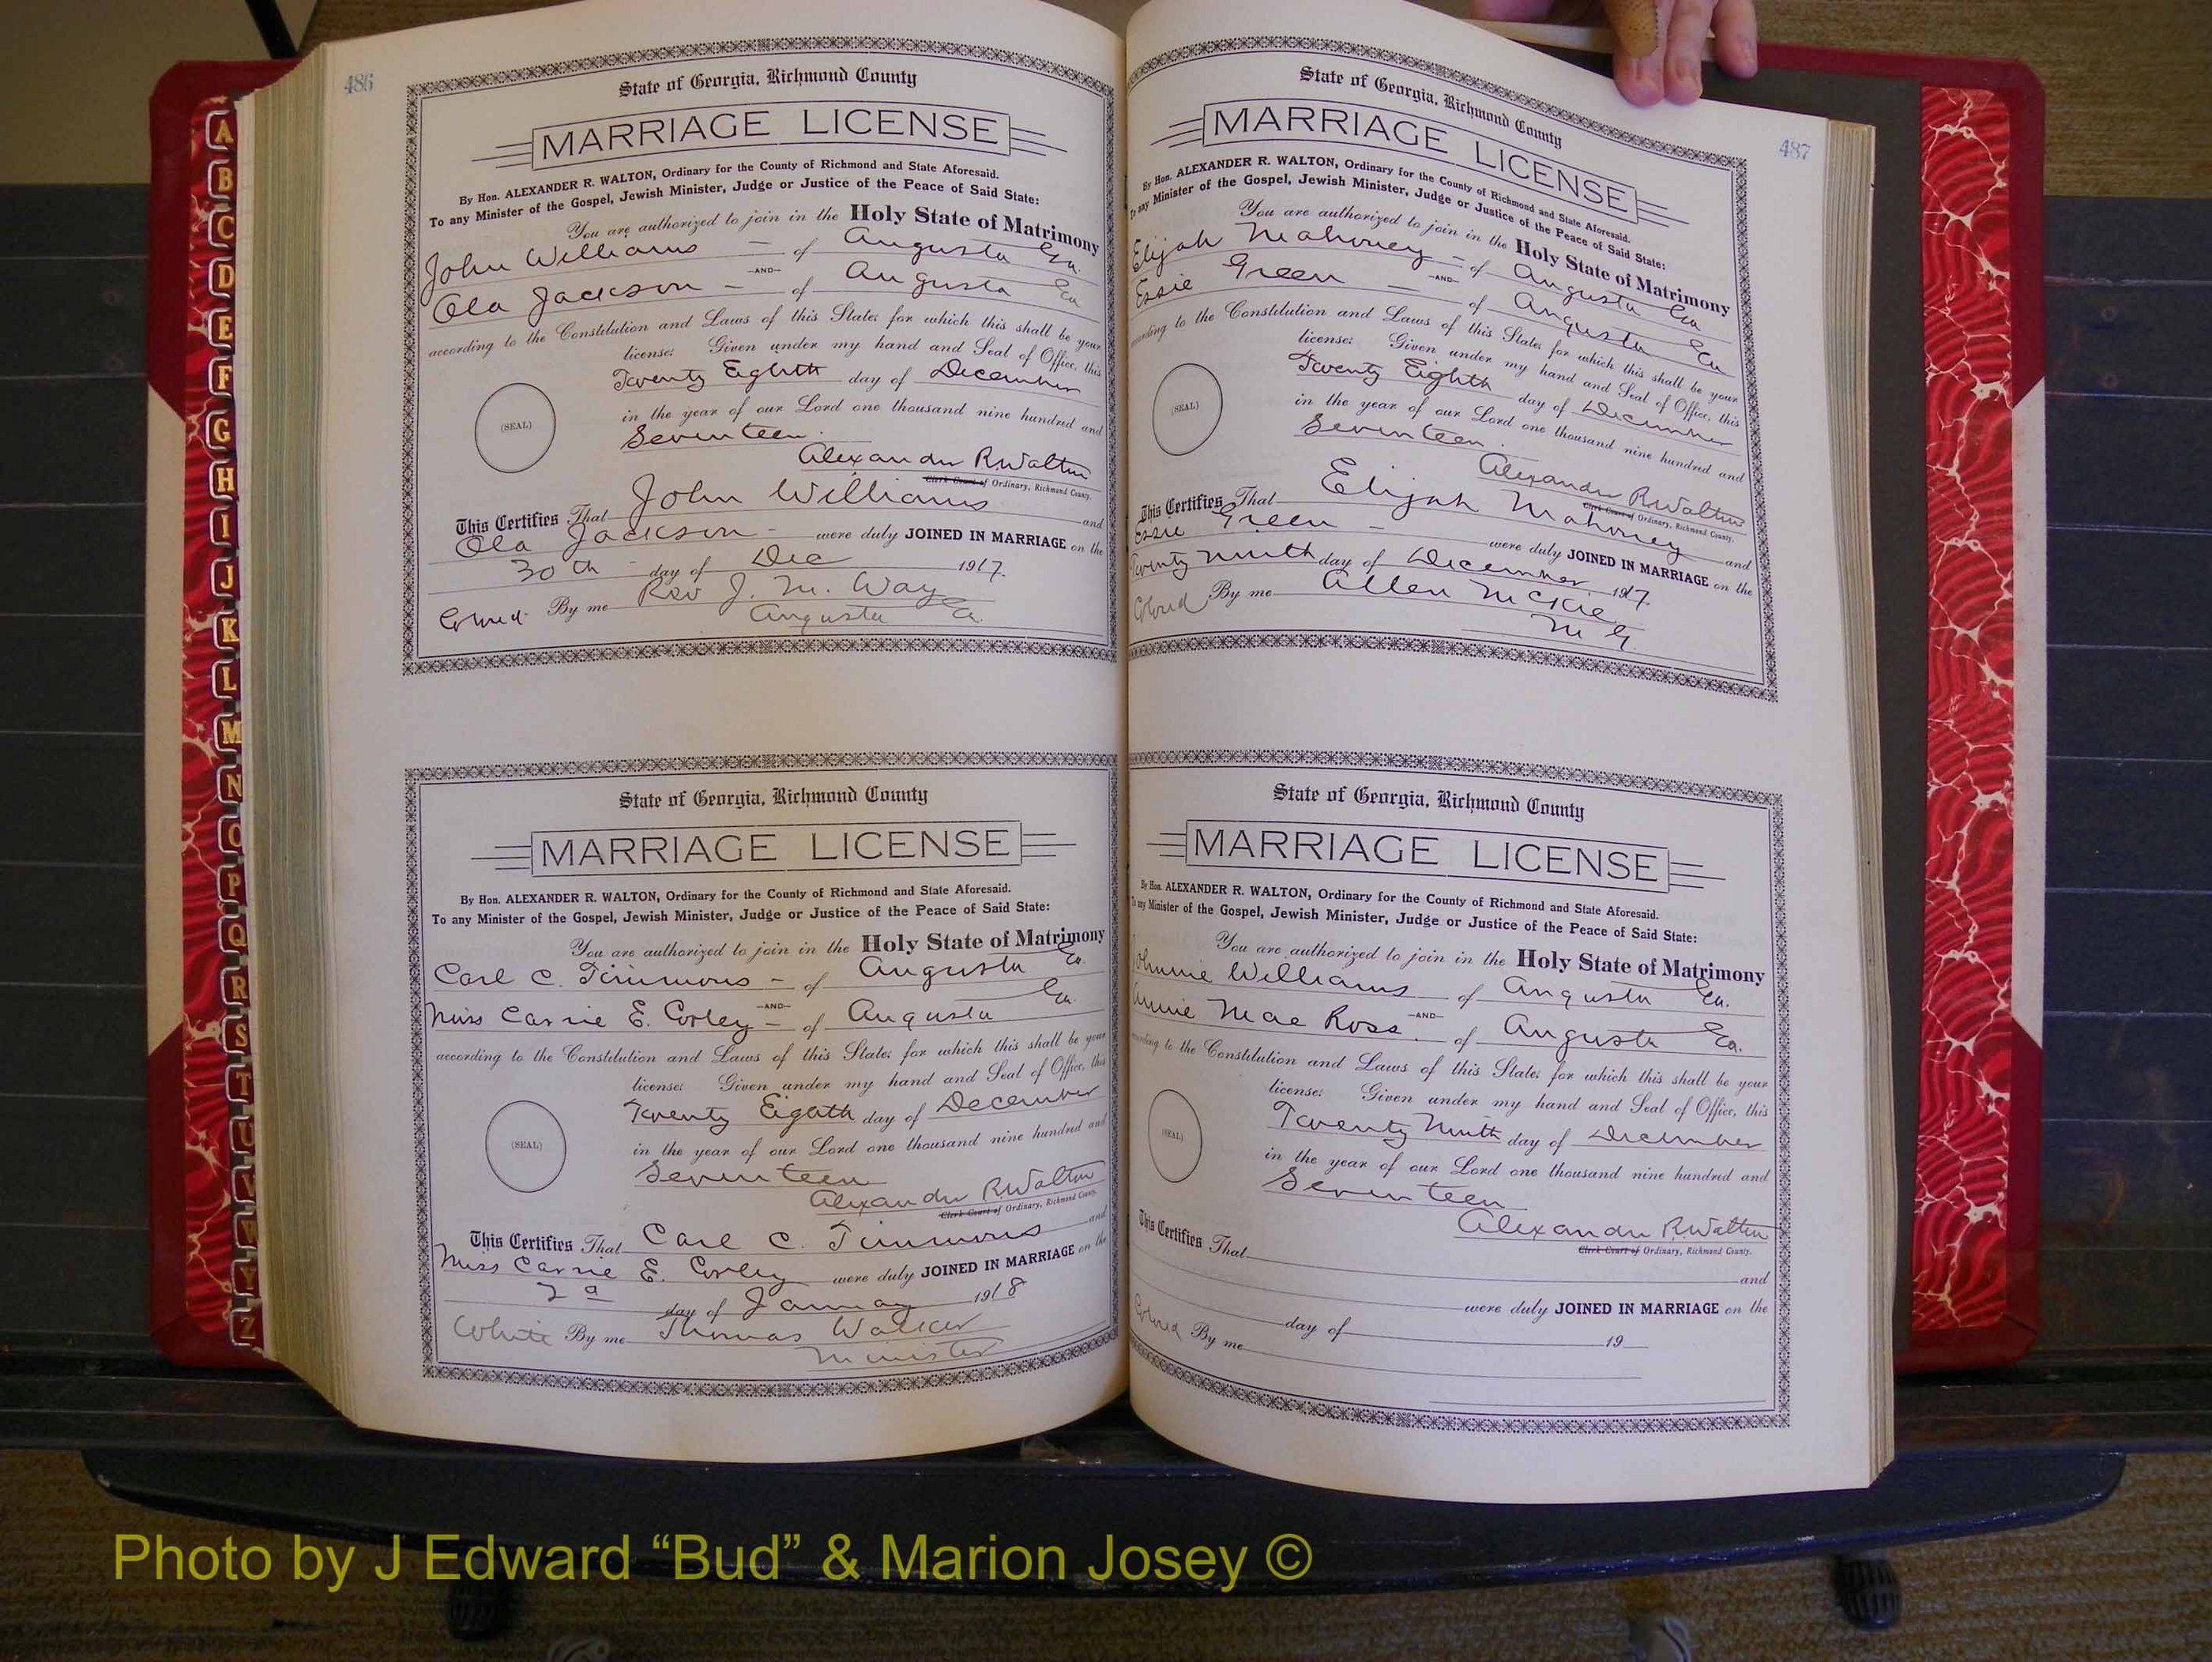 486
State of Georgia, Richmond County
MARRIAGE LICENSE
By Hon. ALEXANDER R. WALTON, Ordinary for the County of Richmond and State Aforesaid.
To any Minister of the Gospel, Jewish Minister, Judge or Justice of the Peace of Said State:
You are authorized to join in the Holy State of Matrimony
John Williams — of Augusta Ga.
—AND—
Ola Jackson — of Augusta Ga
according to the Constitution and Laws of this State; for which this shall be your
license: Given under my hand and Seal of Office, this
Twenty Eighth day of December
in the year of our Lord one thousand nine hundred and
(SEAL)
Seventeen.
Alexander R. Walton
Clerk Court of Ordinary, Richmond County.
This Certifies That John Williams and
Ola Jackson - were duly JOINED IN MARRIAGE on the
30th - day of Dec 1917.
Colored. By me Rev J. M. Way
Augusta Ga.
State of Georgia, Richmond County
MARRIAGE LICENSE
By Hon. ALEXANDER R. WALTON, Ordinary for the County of Richmond and State Aforesaid.
To any Minister of the Gospel, Jewish Minister, Judge or Justice of the Peace of Said State:
You are authorized to join in the Holy State of Matrimony
Carl C. Timmons - of Augusta Ga.
—AND—
Miss Carrie E. Corley - of Augusta Ga.
according to the Constitution and Laws of this State; for which this shall be your
license: Given under my hand and Seal of Office, this
Twenty Eighth day of December
in the year of our Lord one thousand nine hundred and
(SEAL)
Seventeen
Alexander R. Walton
Clerk Court of Ordinary, Richmond County.
This Certifies That Carl C. Timmons and
Miss Carrie E. Corley were duly JOINED IN MARRIAGE on the
2d day of January 1918
White By me Thomas Walker
Minister
487
State of Georgia, Richmond County
MARRIAGE LICENSE
By Hon. ALEXANDER R. WALTON, Ordinary for the County of Richmond and State Aforesaid.
To any Minister of the Gospel, Jewish Minister, Judge or Justice of the Peace of Said State:
You are authorized to join in the Holy State of Matrimony
Elijah Mahoney - of Augusta Ga
—AND—
Essie Green — of Augusta Ga
according to the Constitution and Laws of this State; for which this shall be your
license: Given under my hand and Seal of Office, this
Twenty Eighth day of December
in the year of our Lord one thousand nine hundred and
(SEAL)
Seventeen.
Alexander R. Walton
Clerk Court of Ordinary, Richmond County.
This Certifies That Elijah Mahoney and
Essie Green - were duly JOINED IN MARRIAGE on the
Twenty Ninth day of December 1917.
Colored By me Allen McKie
M G.
State of Georgia, Richmond County
MARRIAGE LICENSE
By Hon. ALEXANDER R. WALTON, Ordinary for the County of Richmond and State Aforesaid.
To any Minister of the Gospel, Jewish Minister, Judge or Justice of the Peace of Said State:
You are authorized to join in the Holy State of Matrimony
Johnnie Williams of Augusta Ga.
—AND—
Annie Mae Ross. of Augusta Ga.
according to the Constitution and Laws of this State; for which this shall be your
license: Given under my hand and Seal of Office, this
Twenty Ninth day of December
in the year of our Lord one thousand nine hundred and
(SEAL)
Seventeen
Alexander R. Walton
Clerk Court of Ordinary, Richmond County.
This Certifies That
and
were duly JOINED IN MARRIAGE on the
day of 19
Colored By me
A
B
C
D
E
F
G
H
I
J
K
L
M
N
O
P
Q
R
S
T
U
V
W
Y
Z
Photo by J Edward “Bud” & Marion Josey ©